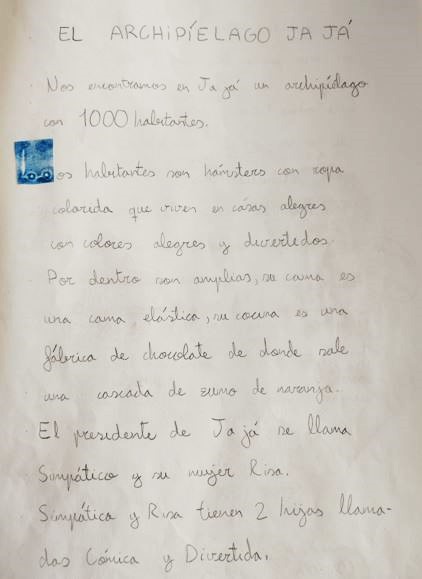 EL ARCHIPÍELAGO JA JÁ
Nos encontramos en Ja já un archipiélago
con 1000 habitantes.
Los habitantes son hámsters con ropa
colorida que viven en cásas alegres
con colores alegres y divertidos.
Por dentro son amplias, su cama es
una cama elástica, su cocina es una
fábrica de chocolate de donde sale
una cascada de zumo de naranja.
El presidente de Ja já se llama
Simpático y su mujer Risa.
Simpática y Risa tienen 2 hijas llama-
das Cómica y Divertida.